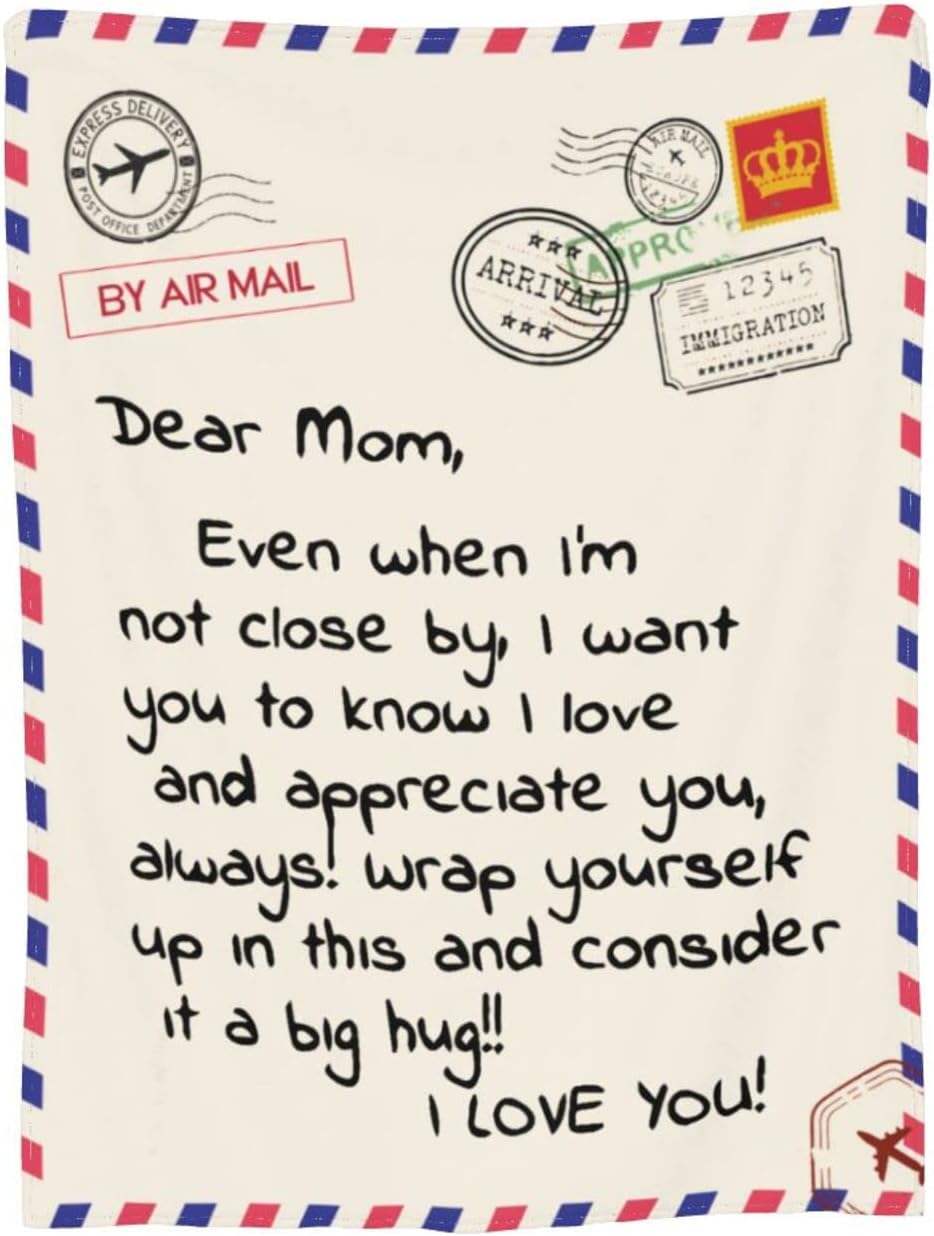 EXPRESS DELIVERY
POST OFFICE DEPARTMENT
AIR MAIL
12345
BY AIR MAIL
ARRIVAL
12345
IMMIGRATION
Dear Mom,
Even when I'm
not close by, I want
you to know I love
and appreciate you,
always! wrap yourself
up in this and consider
it a big hug!!
I LOVE YOU!